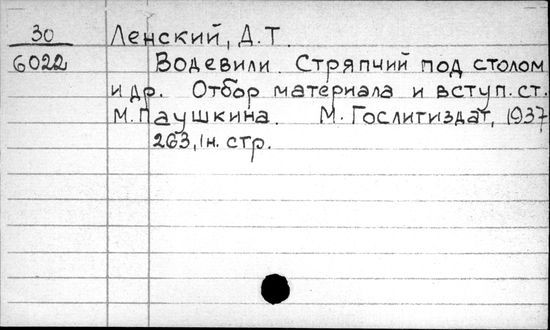 30 Ленский, Д.Т.
6022 Водевили. Стряпчий под столом
и др. Отбор материала и вступ. ст.
М. Паушкина. М. Гослитиздат, 1937
263, 1н. стр.